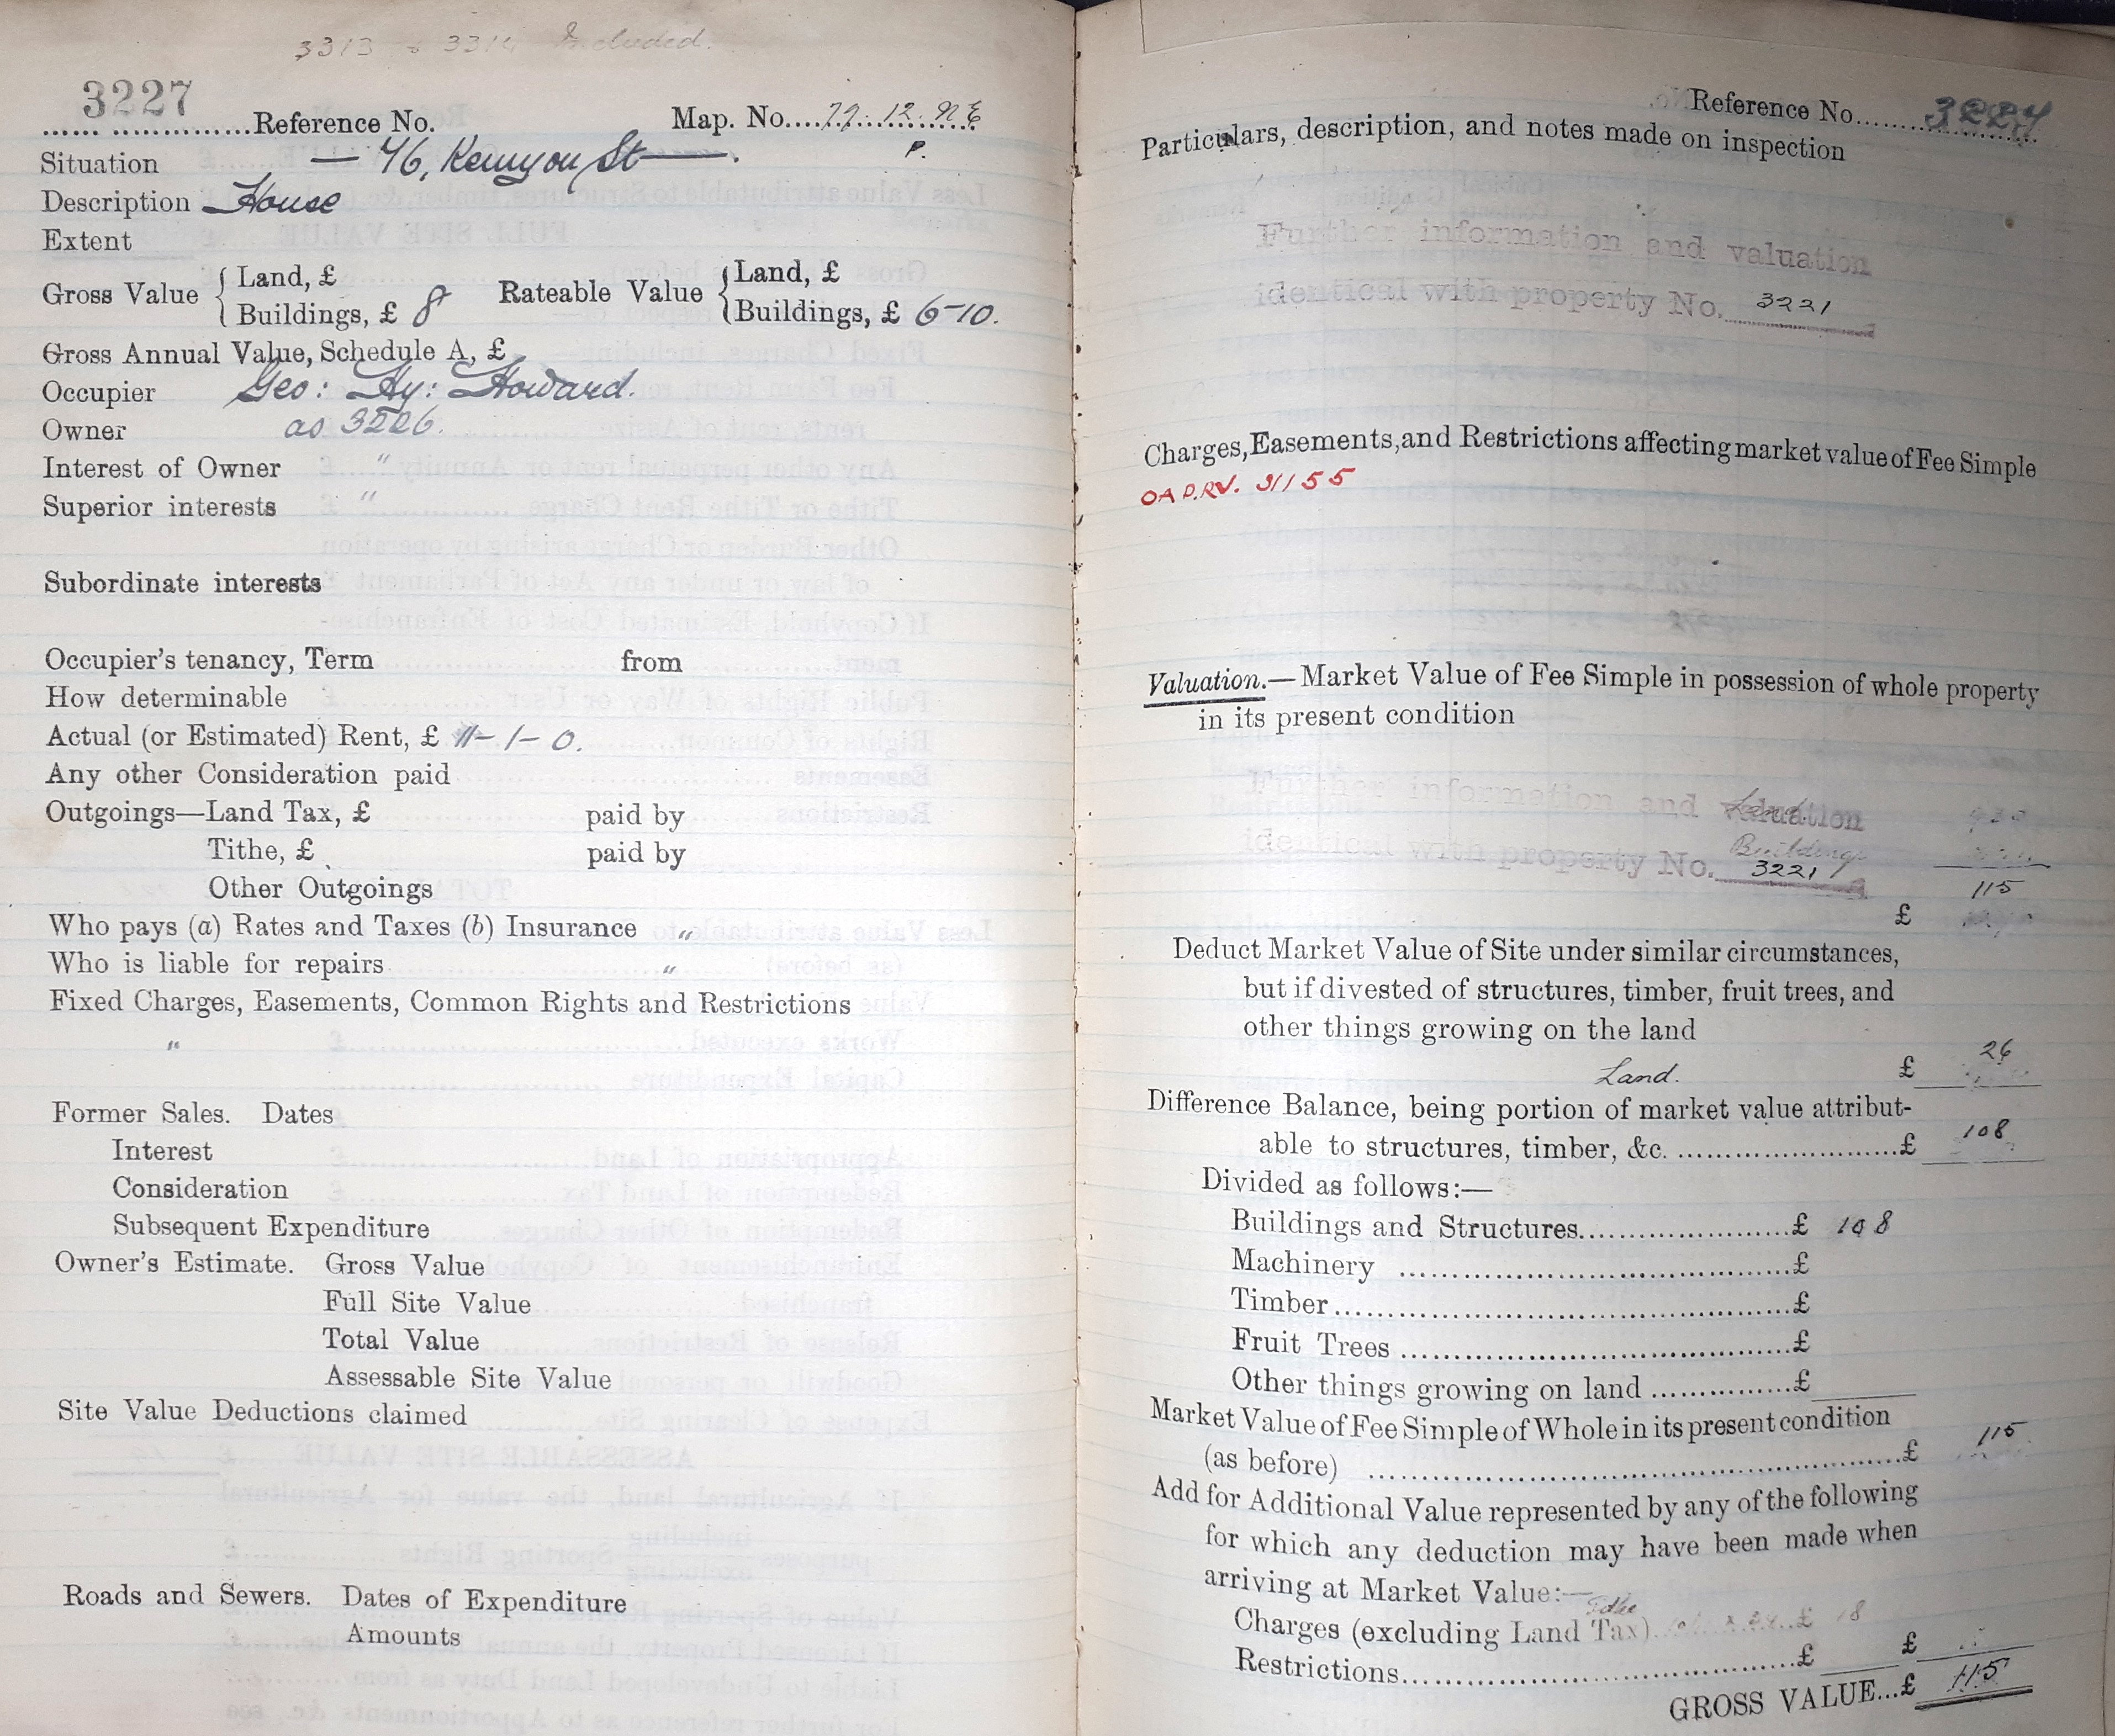 3313 to 3314 Included.
3227
Reference No. Map. No. 77. 12. N E
P.
Situation — 46, Kenyon St —.
Description House
Extent
Gross Value { Land, £ Rateable Value { Land, £
Buildings, £ 8 Buildings, £ 6-10.
Gross Annual Value, Schedule A, £
Occupier Geo: Hy: Howard.
Owner as 3226.
Interest of Owner "
Superior interests "
Subordinate interests
Occupier's tenancy, Term from
How determinable
Actual (or Estimated) Rent, £ 11-1-0.
Any other Consideration paid
Outgoings—Land Tax, £ paid by
Tithe, £ paid by
Other Outgoings
Who pays (a) Rates and Taxes (b) Insurance "
Who is liable for repairs "
Fixed Charges, Easements, Common Rights and Restrictions
"
Former Sales. Dates
Interest
Consideration
Subsequent Expenditure
Owner's Estimate. Gross Value
Full Site Value
Total Value
Assessable Site Value
Site Value Deductions claimed
Roads and Sewers. Dates of Expenditure
Amounts
Reference No.
Particulars, description, and notes made on inspection
Further information and valuation
identical with property No. 3221
Charges, Easements, and Restrictions affecting market value of Fee Simple
OA D.RV. 31155
Valuation.—Market Value of Fee Simple in possession of whole property
in its present condition
Further information and valuation Land
Buildings
identical with property No. 3221
115
£
Deduct Market Value of Site under similar circumstances,
but if divested of structures, timber, fruit trees, and
other things growing on the land
Land. £ 26
Difference Balance, being portion of market value attribut-
able to structures, timber, &c. £ 108
Divided as follows:—
Buildings and Structures £ 108
Machinery £
Timber £
Fruit Trees £
Other things growing on land £
Market Value of Fee Simple of Whole in its present condition
(as before) £ 115
Add for Additional Value represented by any of the following
for which any deduction may have been made when
arriving at Market Value:—
Charges (excluding Land Tax) £ 18
Restrictions £ £
GROSS VALUE...£ 115